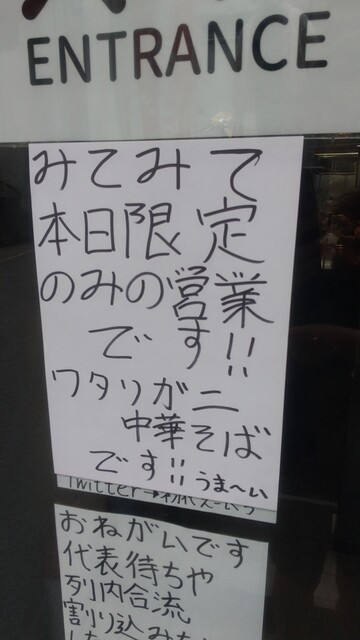 ENTRANCE
みてみて
本日限定
のみの営業
です!!
ワタリガニ
中華そば
です!! うま〜い
Twitter→
おねがいです
代表待ちや
列内合流
割り込みも